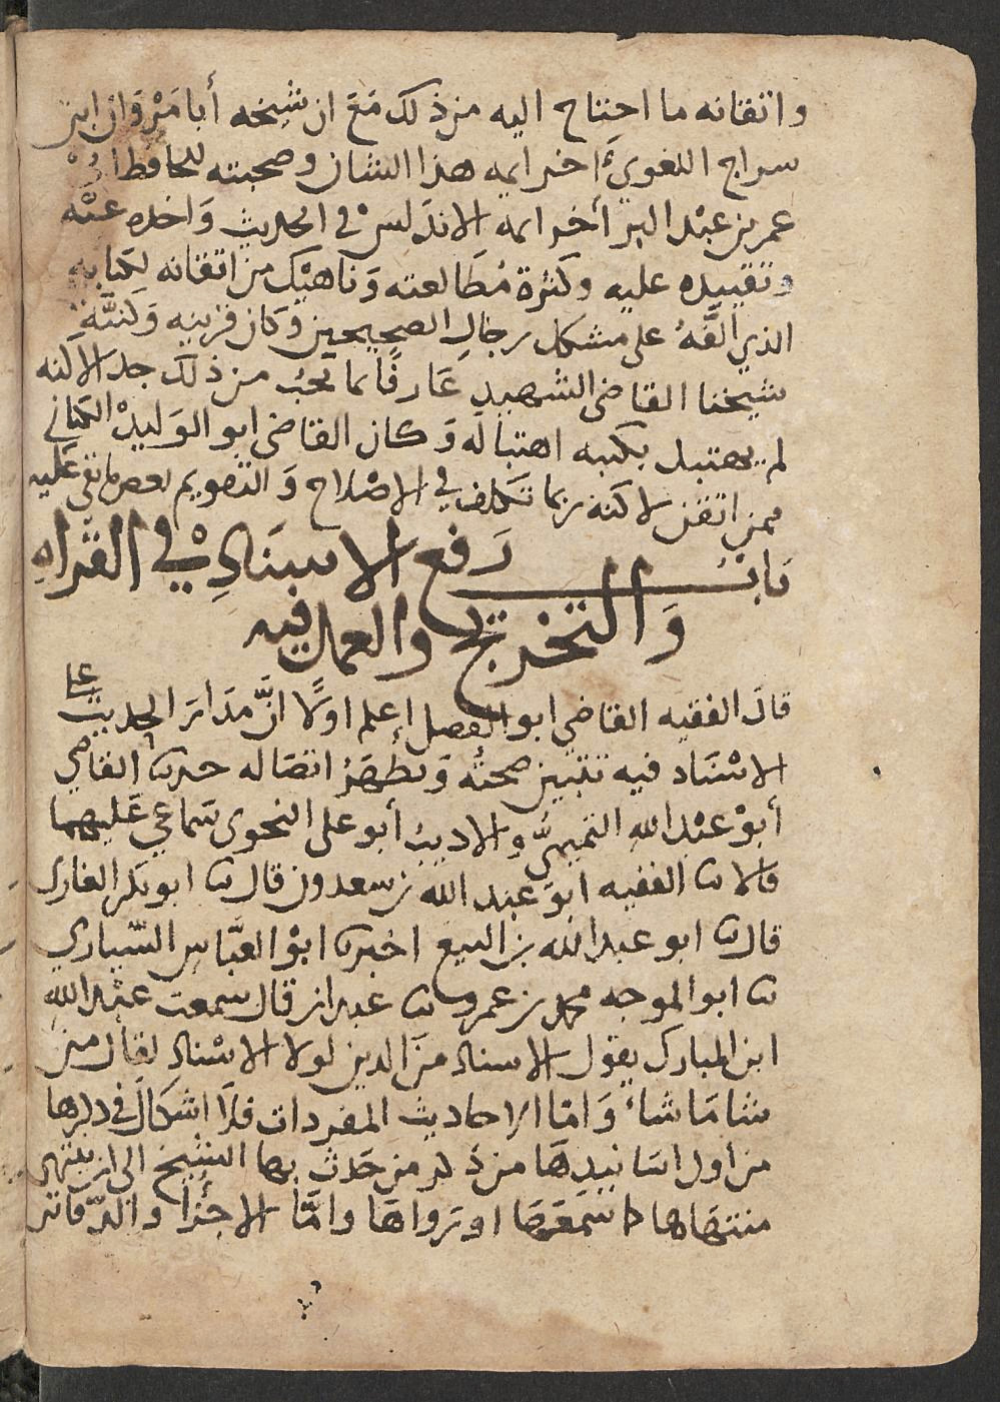 واتقانه ما احتاج اليه من ذلك مَعَ ان شيخه أبا مَرْوَان ابن
سراج اللغوي آخر ايمه هذا الشان وصحبته للحافظ ابي
عمر بن عبْد البر آخر ايمه الاندلس في الحديث وَاخذه عنْه
وتقييده عليه وكثرة مُطَالعته وَناهيْك من اتقانه لكتابه
الذي ألّفهُ على مشكل رجال الصحيحين وَكان قرينه وَكنيُّهُ
شيخنا القاضى الشهيد عَارفًا بما يجبُ من ذلك جدا لاكنه
لم يهتبل بكتبه اهتباله وَكان القاضى ابو الوَليدْ الكناني
ممن اتقن لاكنه ربما تكلف في الاصْلاح وَالتقويم بعض ما نقى عَليه
بَابُ رَفع الاسنَادِ في القراه
وَالتخريج والعمل فيه
قالَ الفقيه القاضي ابو الفضل إعلم اولًا انَّ مدَارَ الحديث على
الاسْنَاد فيه تتبين صحتُه وَيظهَرُ اتصَاله حدثنا القاضي
أبوْ عبْد الله التميميُّ والاديبُ أبو على النحوى سَماعي عَليهما
قالا نا الفقيه ابوَ عبد الله بن سعدون قال نا ابو بكر الغازى
قال نا ابو عبد الله بن البيع اخبرنا ابوْ العبَّاس السّيباري
نا ابو الموجه محمد بن عمرو نا عبدان قال سمعت عبْد الله
ابن المبارك يقول الاسناد منَ الدين لولا الاسْناد لقال من
شا مَا شاءَ وَامّا الاحاديث المفردات فلَا اشكَالَ في ذكرها
من اول اسَانيدهَا من ذكر من حَدث بها الشيخ الى ان ينتهى
منتهَاها كما سَمعَهَا او رَواهَا وامَّا الاجْزَا والدّفاتر